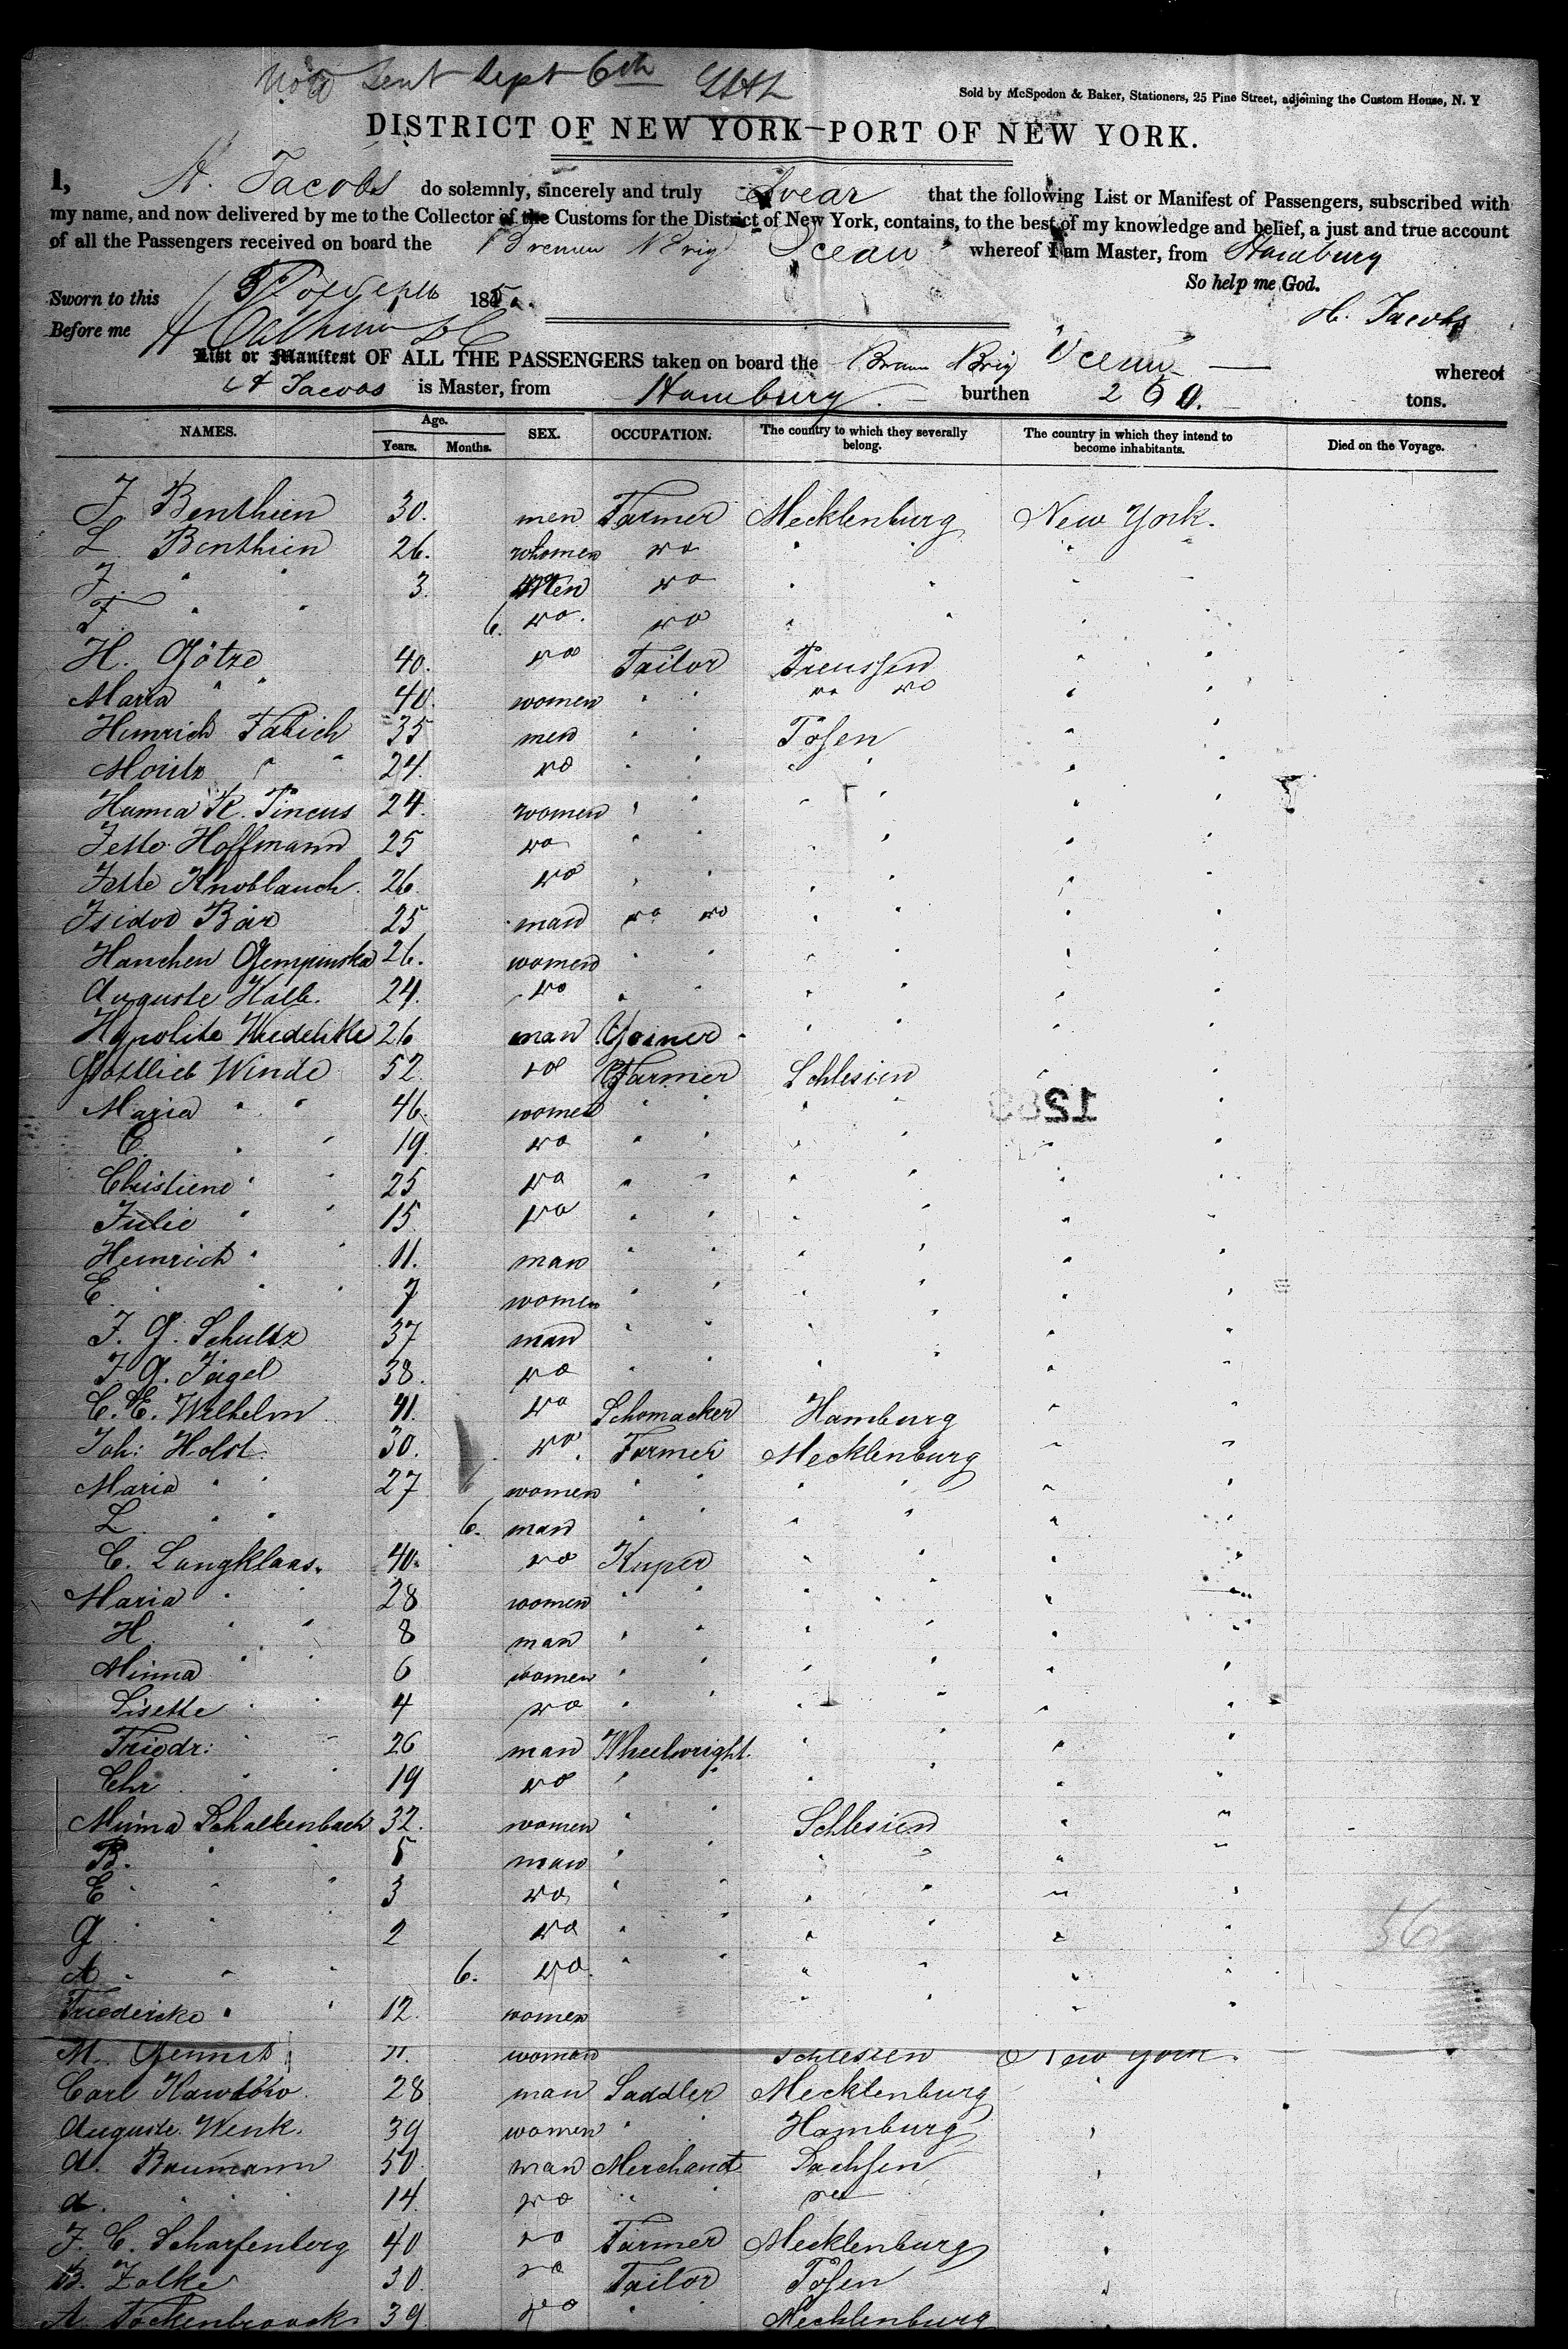 Sent Sept 6th
Sold by McSpedon & Baker, Stationers, 25 Pine Street, adjoining the Custom House, N. Y
DISTRICT OF NEW YORK—PORT OF NEW YORK.
I, H. Jacobs do solemnly, sincerely and truly Swear that the following List or Manifest of Passengers, subscribed with
my name, and now delivered by me to the Collector of the Customs for the District of New York, contains, to the best of my knowledge and belief, a just and true account
of all the Passengers received on board the Bremen Brig Ocean whereof I am Master, from Hamburg
So help me God.
Sworn to this 185
H. Jacobs
Before me
List or Manifest OF ALL THE PASSENGERS taken on board the Brem Brig Ocean — whereof
H Jacobs is Master, from Hamburg. — burthen 260. tons.
NAMES. Age. Years. Months. SEX. OCCUPATION. The country to which they severally belong. The country in which they intend to become inhabitants. Died on the Voyage.
J Benthien 30. men Farmer Mecklenburg New York.
L Benthien 26. whomen do " "
J. " " 3. Men do " "
F. " " 6. do. do " "
H. Götze 40. do Tailor Preussen " "
Maria " " 40. women " " do do " "
Heinrich Fabich 35 men " " Posen " "
Moritz " " 24. do " " " "
Hanna R. Pincus 24. women " " " "
Jette Hoffmann 25 do " " " "
Jette Knoblauch 26. do " " " "
Isidor Bär 25 man do do " "
Hanchen Gempinska 26. women " " " "
Auguste Kalb. 24. do " " " "
Hypolite 26 man Joiner " "
Gottlieb Winde 52. do Farmer Schlesien " "
1283
Maria " " 46. women " " " "
C. " " 19. do " " " "
Christiene " " 25 do " " " "
Julie " " 15. do " " " "
Heinrich " " 11. man " " " "
E. " " 7 women " " " "
J. G. Schultz 37 man " " " "
J. G. Jägel 38. do " " " "
C. E. Wilhelm 41. do Schomacker Hamburg " "
Joh: Holst. 30. do. Farmer Mecklenburg " "
Maria " " 27 women " " " "
L. " " 6. man " " " "
C. Langklaas. 40. do Kuper " "
Maria " 28 women " " " "
H " " 8 man " " " "
Minna " " 6 women " " " "
Lisette " " 4 do " " " "
Friedr: " " 26 man Wheelwright. " "
Chr " " 19 do " " " "
Minna Schallenbach 32. women " " Schlesien " "
B. " " 5 man " " " "
E " " 3 do " " " "
G. " " 2 do " " " "
56
A " " 6. do. " " " "
Friedericke " " 12. women " " " "
M. woman Schlesien New York.
Carl 28 man Saddler Mecklenburg "
Auguste Wenk. 39 women " " Hamburg "
A. Baumann 50. man Merchant Sachsen "
A. " " 14. do " " do "
F. C. Scharfenberg 40 do Farmer Mecklenburg "
B. Zalke 30. do Tailor Posen "
A 39. do " Mecklenburg